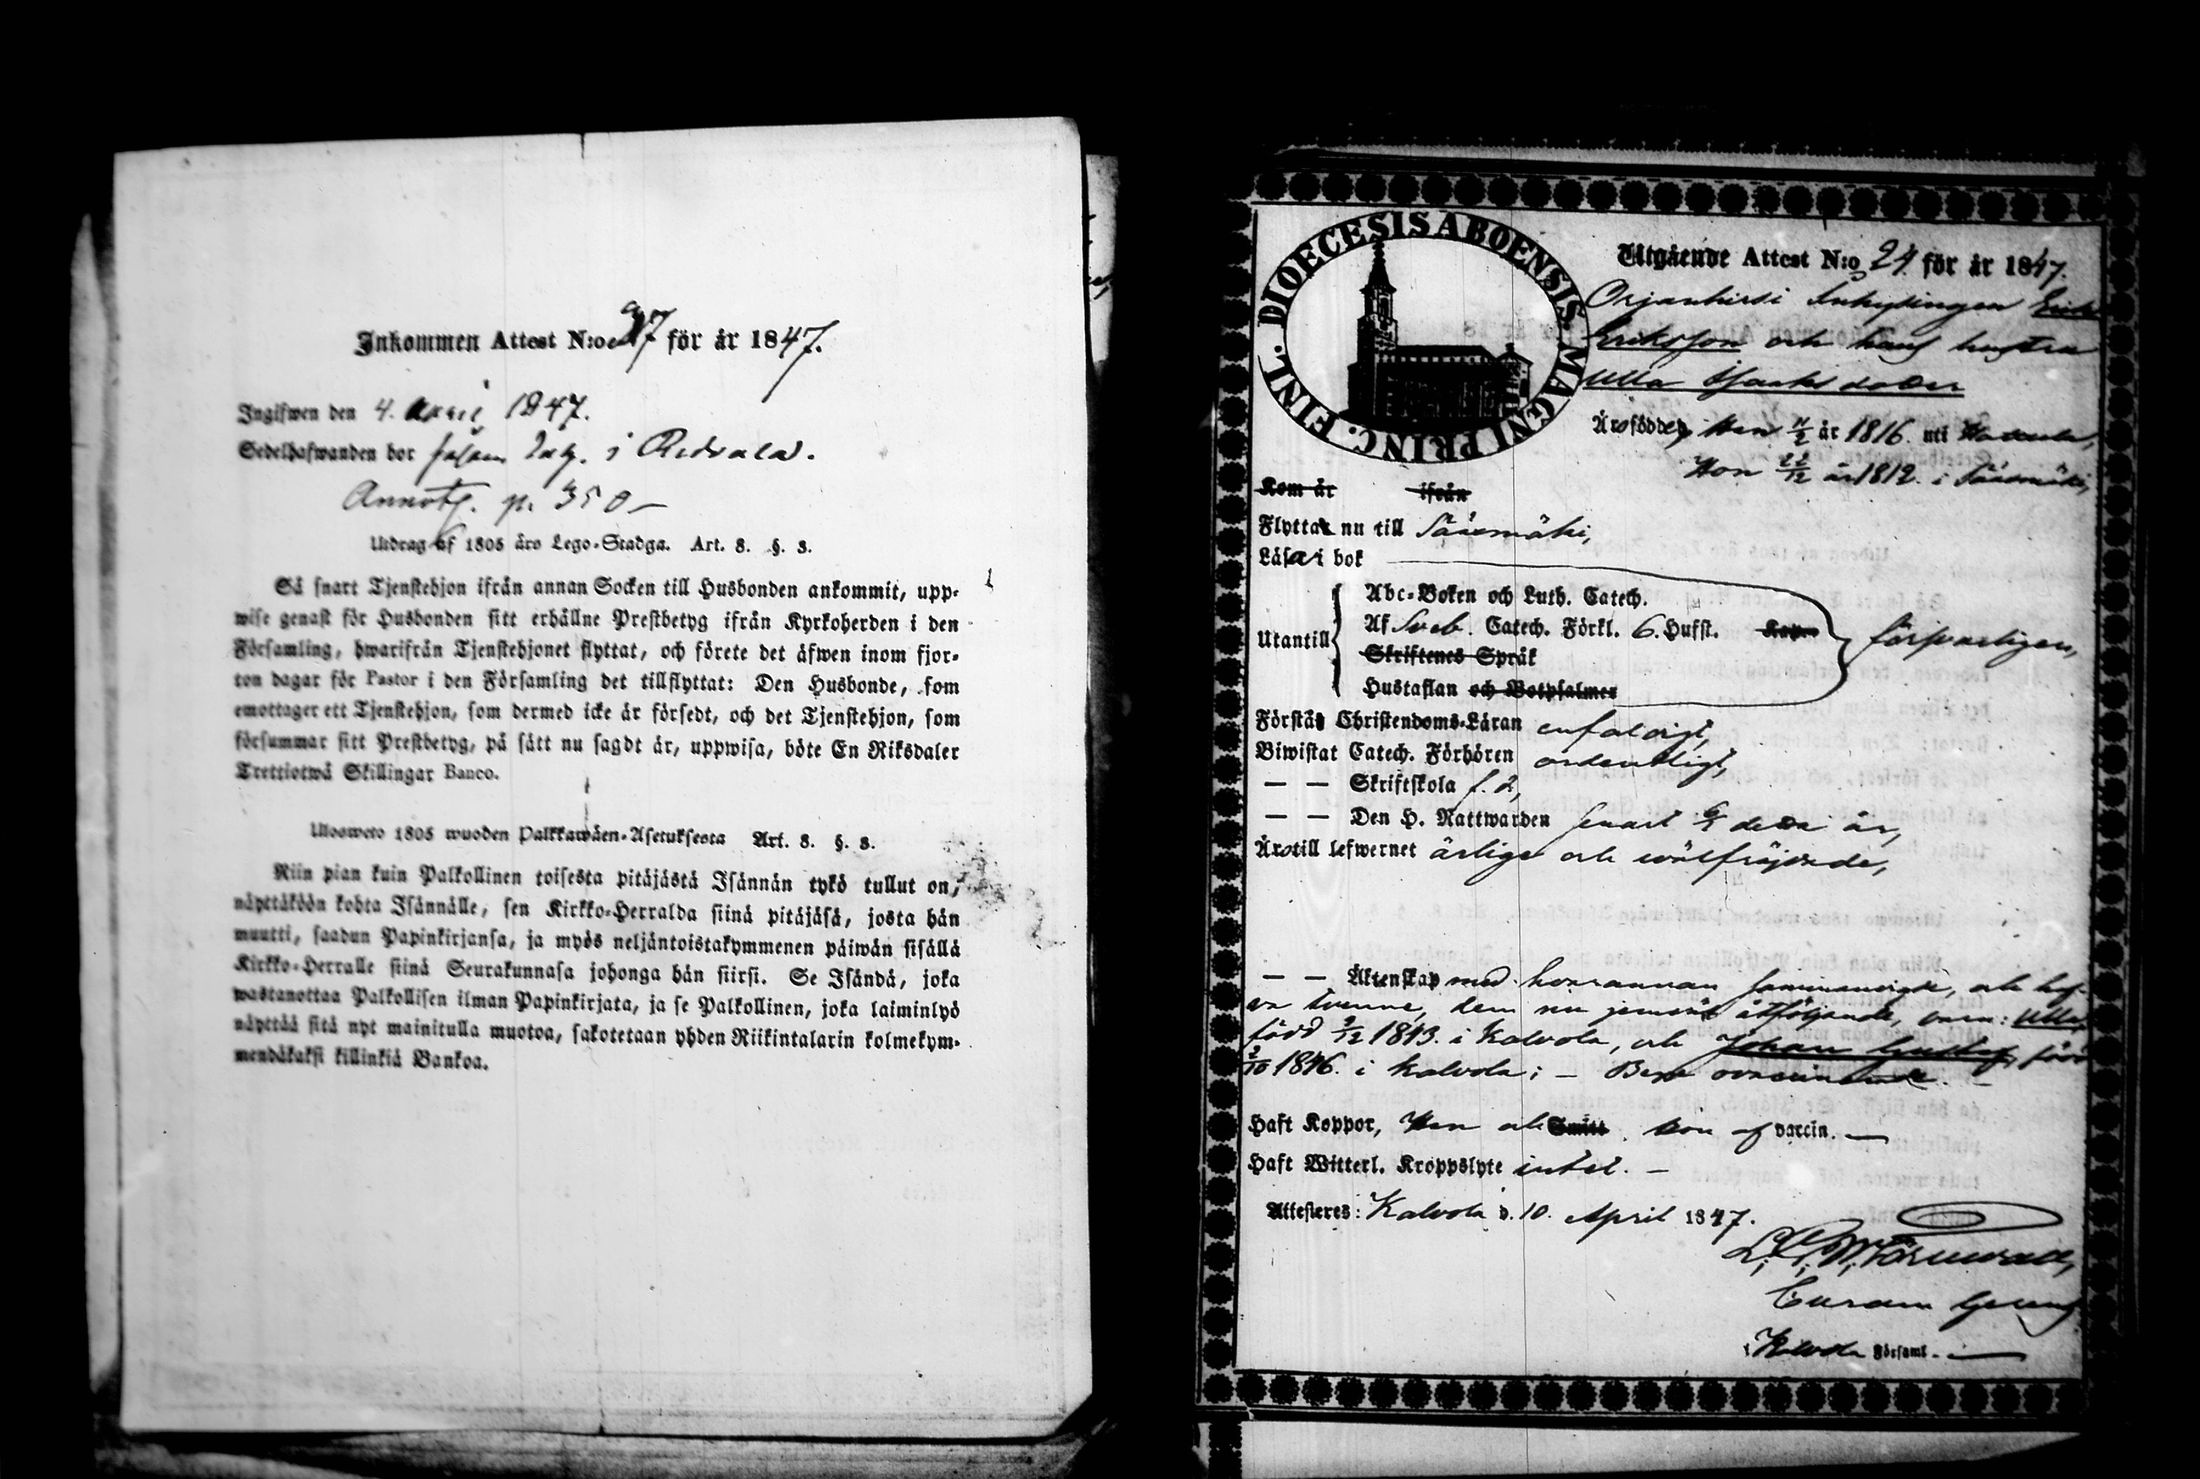 Inkommen Attest N:o 97 för år 1847.
Ingifwen den 4. 1847.
Sedelhafwanden bor i
Annotg. p. 350 –
Utdrag af 1805 års Lego-Stadga. Art. 8. §. 3.
Så snart Tjenstehjon ifrån annan Socken till Husbonden ankommit, upp-
wise genast för Husbonden sitt erhållne Prestbetyg ifrån Kyrkoherden i den
Församling, hwarifrån Tjenstehjonet flyttat, och förete det äfwen inom fjor-
ton dagar för Pastor i den Församling det tillflyttat: Den Husbonde, som
emottager ett Tjenstehjon, som dermed icke är försedt, och det Tjenstehjon, som
försummar sitt Prestbetyg, på sätt nu sagdt är, uppwisa, böte En Riksdaler
Trettiotwå Skillingar Banco.
Ulosweto 1805 wuoden Palkkawäen-Asetuksesta Art. 8. §. 3.
Niin pian kuin Palkollinen toisesta pitäjästä Isännän tykö tullut on,
näyttäköön kohta Isännälle, sen Kirkko-Herralda siinä pitäjäsä, josta hän
muutti, saadun Papinkirjansa, ja myös neljäntoistakymmenen päiwän sisällä
Kirkko-Herralle siinä Seurakunnasa johonga hän siirsi. Se Isändä, joka
wastanottaa Palkollisen ilman Papinkirjata, ja se Palkollinen, joka laiminlyö
näyttää sitä nyt mainitulla muotoa, sakotetaan yhden Riikintalarin kolmekym-
mendäkaksi killinkiä Bankoa.
DIOECESIS ABOENSIS. MAGNI PRINC. FINL.
Utgående Attest N:o 24. för år 1847.
Orjanhirsi Inhysingen Erik
Eriksson och hans hustru
Ulla Jsaksdotter
Äro födde, Han 11/2 år 1816. uti
Hon 22/12 år 1812. i Sääsmäki,
Kom år ifrån
Flytta nu till Sääsmäki,
Läsa i bok
Abc-Boken och Luth. Catech.
Utantill Af Sveb. Catech. Förkl. 6. Hufst. försvarligen,
Skriftenes Språk
Hustaflan och Botpsalmer
Förstå Christendoms-Läran enfaldigt,
Biwistat Catech. Förhören ordentligt,
— — Skriftskola f. d,
— — Den H. Nattwarden senast detta år,
Äro till lefwernet ärliga och wälfräjdade,
— — Äktenskap med hvarannan och haf-
va tvenne, dem nu åtföljande, barn: Ulla,
född 9/12 1843. i Kalvola, och Johan Gustaf, född
2/10 1846. i Kalvola; – ovaccinerade. –
Haft Koppor, Han och Smitt hon af vaccin. —
Haft Witterl. Kroppslyte intet. –
Attesteres: Kalvola d. 10. April 1847.
Curam Gerens
i Kalvola Församl. —